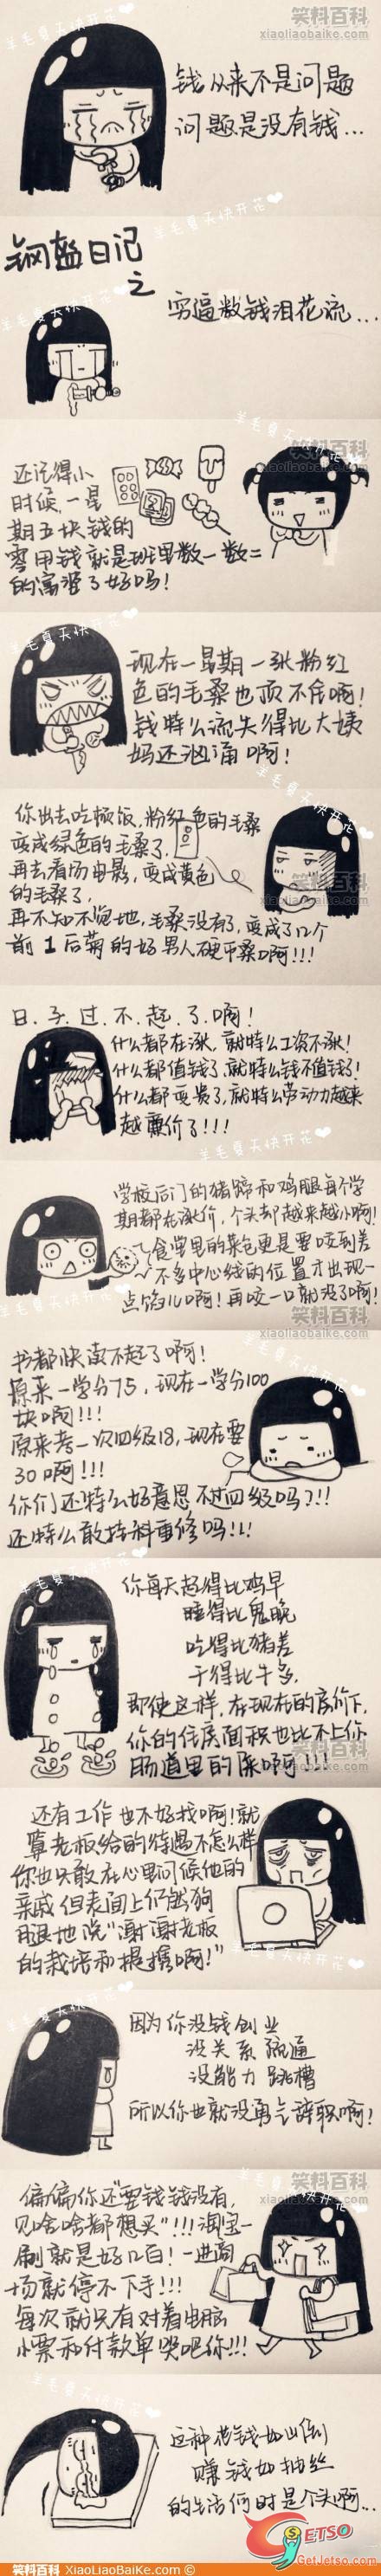 笑料百科
xiaoliaobaike.com
羊毛夏天快开花
钱从来不是问题
问题是没有钱...
钢盔日记
之
穷逼数钱泪花流...
羊毛夏天快开花
羊毛夏天快开花
笑料百科
xiaoliaobaike.com
还记得小
时候,一星
期五块钱的
零用钱就是班里数一数二
的富婆了好吗!
羊毛夏天快开花
现在一星期一张粉红
色的毛桑也顶不住啊!
钱特么流失得比大姨
妈还汹涌啊!
羊毛夏天快开花
你出去吃顿饭,粉红色的毛桑
变成绿色的毛桑了,
再去看场电影,变成黄色
的毛桑了,
再不知不觉地,毛桑没有了,变成了12个
前1后菊的好男人硬币桑啊!!!
笑料百科
xiaoliaobaike.com
日.子.过.不.起.了.啊!
什么都在涨,就特么工资不涨!
什么都值钱了,就特么钱不值钱了!
什么都变贵了,就特么劳动力越来
越廉价了!!!
羊毛夏天快开花
学校后门的猪蹄和鸡腿每个学
期都在涨价,个头却越来越小啊!
食堂里的菜包更是要咬到差
不多中心线的位置才出现一
点馅儿啊!再咬一口就没了啊!
羊毛夏天快开花
笑料百科
xiaoliaobaike.com
书都快读不起了啊!
原来一学分75,现在一学分100
块啊!!!
原来考一次四级18,现在要
30啊!!!
你们还特么好意思不过四级吗?!!
还特么敢挂科重修吗!!!
羊毛夏天快开花
羊毛夏天快开花
你每天起得比鸡早
睡得比鬼晚
吃得比猪差
干得比牛多,
即使这样,在现在的房价下,
你的住房面积也比不上你
肠道里的屎啊!!!
笑料百科
xiaoliaobaike.com
还有工作也不好找啊!就
算老板给的待遇不怎么样
你也只敢在心里问候他的
亲戚但表面上仍然狗
腿地说"谢谢老板
的栽培和提携啊!"
羊毛夏天快开花
羊毛夏天快开花
因为你没钱创业
没关系疏通
没能力跳槽
所以你也就没勇气辞职啊!
羊毛夏天快开花
笑料百科
xiaoliaobaike.com
偏偏你还"要钱钱没有,
见啥啥都想买"!!!淘宝一
刷就是好几百!一进商
场就停不下手!!!
每次就只有对着电脑
小票和付款单哭吧你!!!
羊毛夏天快开花
这种花钱如山倒
赚钱如抽丝
的生活何时是个头啊...
笑料百科 XiaoLiaoBaiKe.com ©
GETSO
GetJetso.com